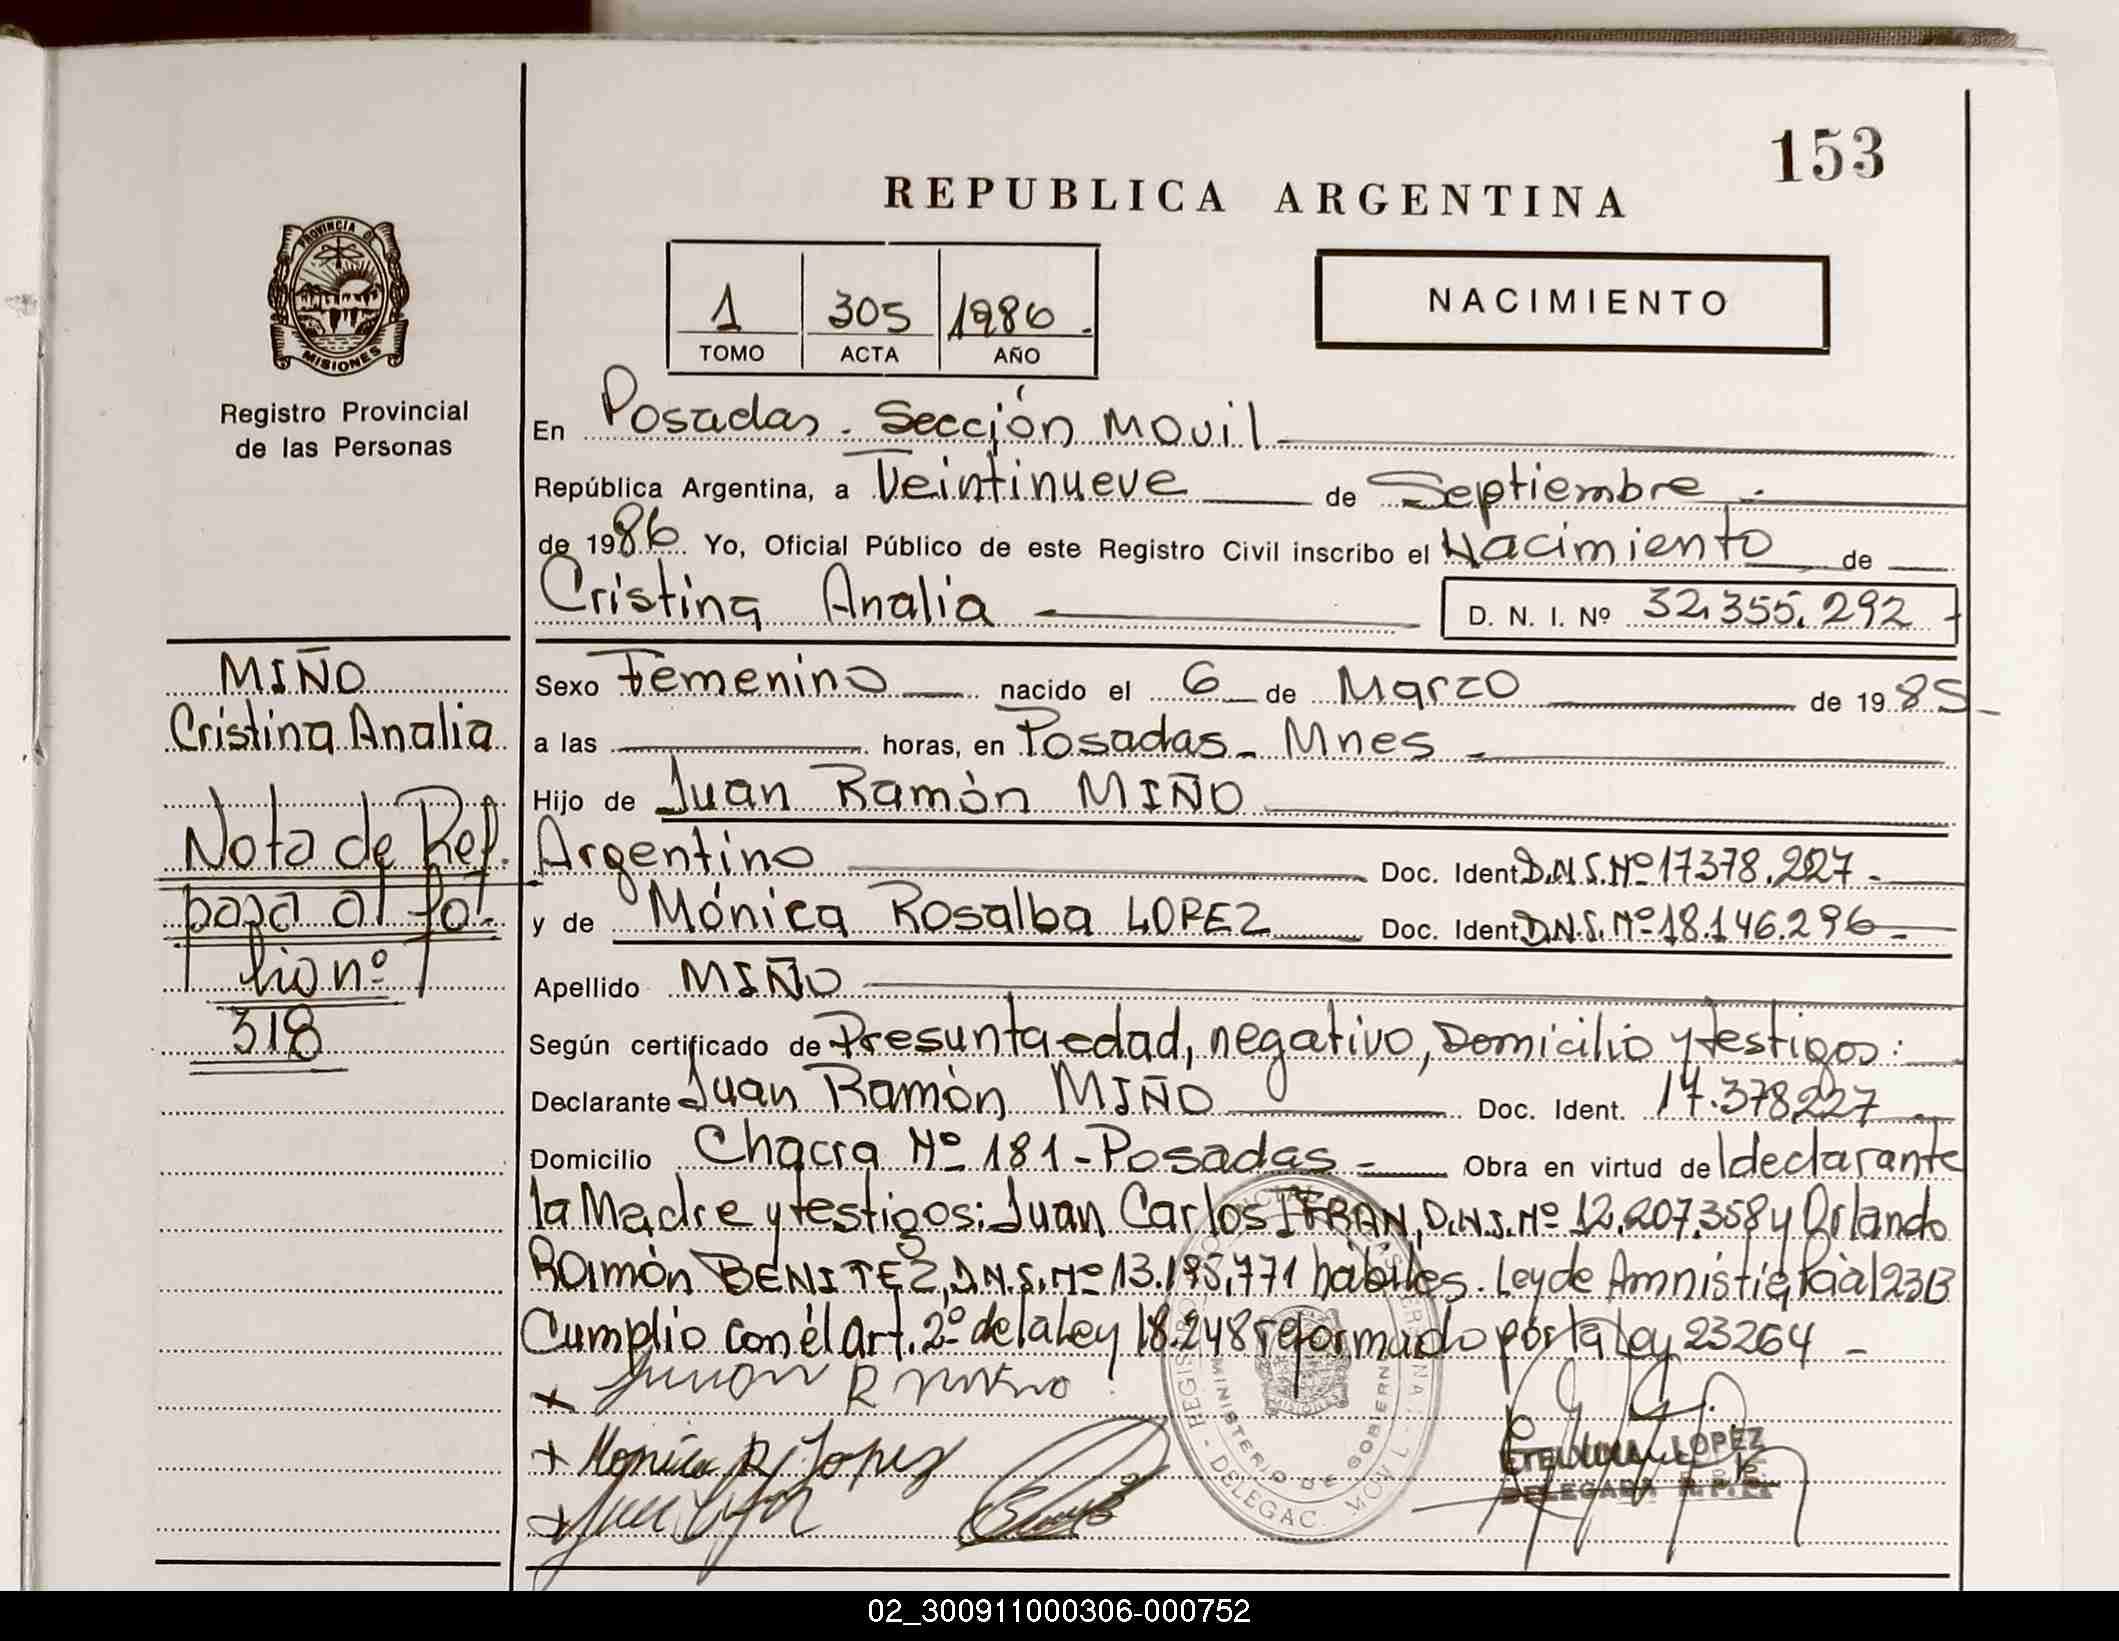 153
REPUBLICA ARGENTINA
PROVINCIA DE
MISIONES
Registro Provincial
de las Personas
1 305 1986.
TOMO ACTA AÑO
NACIMIENTO
En Posadas. Sección Movil
República Argentina, a Veintinueve de Septiembre.
de 1986 Yo, Oficial Público de este Registro Civil inscribo el Nacimiento de
Cristina Analia D. N. I. Nº 32.355.292
MIÑO
Cristina Analia
Nota de Ref.
pasa al fo
lio nº
318
Sexo Femenino nacido el 6 de Marzo de 1985
a las horas, en Posadas - Mnes
Hijo de Juan Ramón MIÑO
Argentino Doc. Ident D.N.I. Nº 17378.227
y de Mónica Rosalba LOPEZ Doc. Ident D.N.I. Nº 18.146.296
Apellido MIÑO
Según certificado de Presunta edad, negativo, Domicilio y testigos:
Declarante Juan Ramón MIÑO Doc. Ident. 17.378227
Domicilio Chacra Nº 181 - Posadas Obra en virtud de l declarante
la Madre y testigos: Juan Carlos D.N.I. Nº 12.207.358 y Orlando
Ramón BENITEZ, D.N.I. Nº 13.195.771 hábiles. Ley de Amnistía
Cumplio con él art. 2º de la Ley 18.248 reformado por la Ley 23264
Monica R. Lopez
REGIS
MINISTERIO DE GOBIERN
DELEGAC. MOVIL
LOPEZ
DELEGADA R.P.P.
02_300911000306-000752